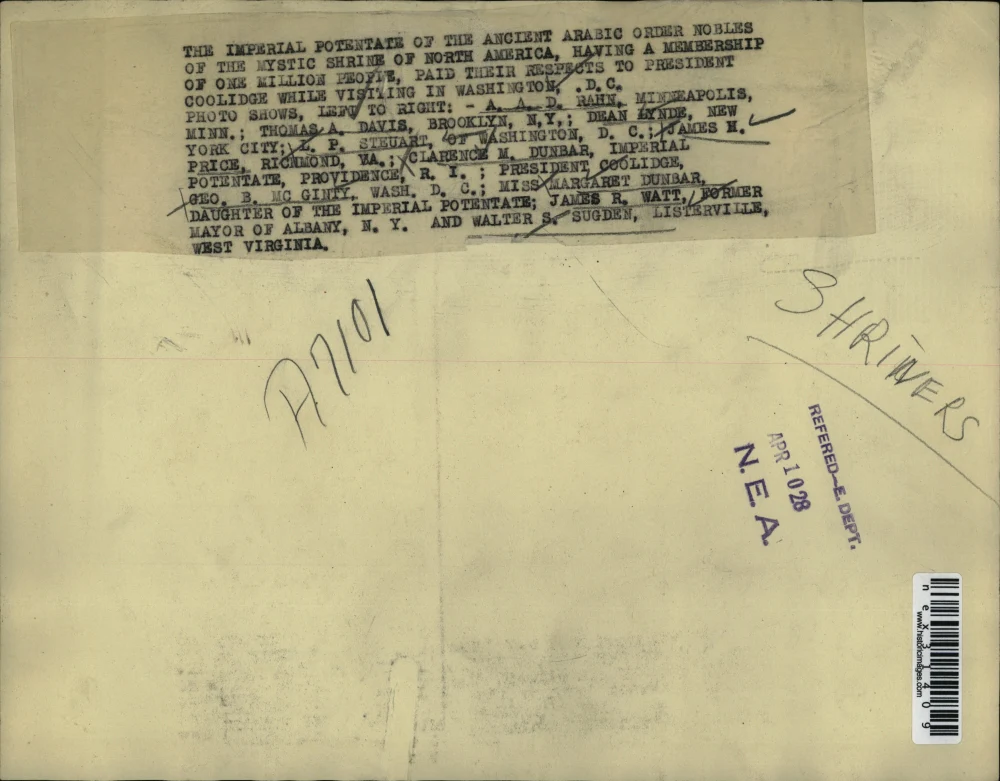 THE IMPERIAL POTENTATE OF THE ANCIENT ARABIC ORDER NOBLES
OF THE MYSTIC SHRINE OF NORTH AMERICA, HAVING A MEMBERSHIP
OF ONE MILLION PEOPLE, PAID THEIR RESPECTS TO PRESIDENT
COOLIDGE WHILE VISITING IN WASHINGTON, .D.C.
PHOTO SHOWS, LEFT TO RIGHT: - A. A. D. RAHN, MINNEAPOLIS,
MINN.; THOMAS A. DAVIS, BROOKLYN, N,Y,; DEAN LYNDE, NEW
YORK CITY; L. P. STEUART, OF WASHINGTON, D. C.; JAMES H.
PRICE, RICHMOND, VA.; CLARENCE M. DUNBAR, IMPERIAL
POTENTATE, PROVIDENCE, R. I. ; PRESIDENT COOLIDGE,
GEO. B. MC GINTY, WASH. D. C.; MISS MARGARET DUNBAR,
DAUGHTER OF THE IMPERIAL POTENTATE; JAMES R. WATT, FORMER
MAYOR OF ALBANY, N. Y. AND WALTER S. SUGDEN, LISTERVILLE,
WEST VIRGINIA.
A7101
SHRINERS
REFERED-E. DEPT.
APR 10 28
N. E. A.
nex31409
www.historicimages.com